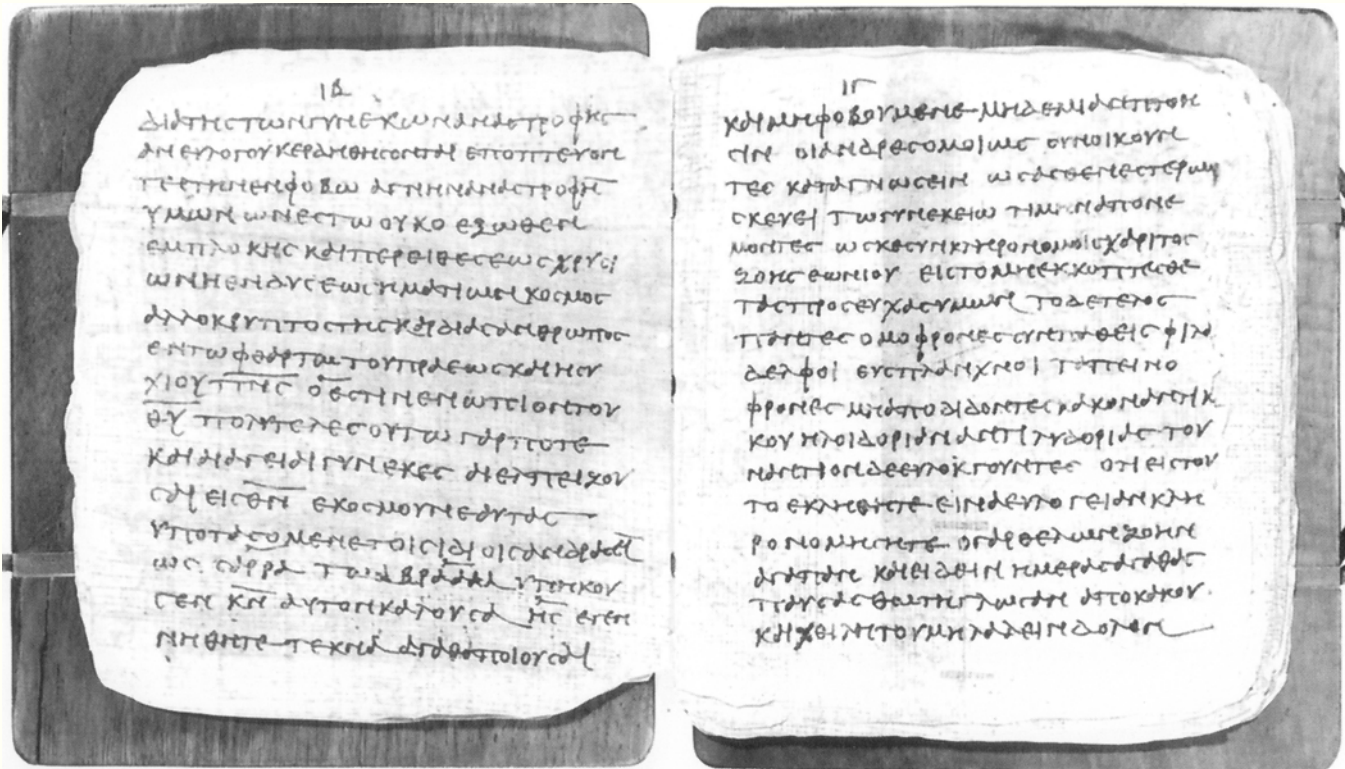 ΙΒ
ΔΙΑΤΗΣΤΩΝΓΥΝΕΚΩΝΑΝΑΣΤΡΟΦΗΣ
ΑΝΕΥΛΟΓΟΥΚΕΡΔΑΝΘΗΣΟΝΤΑΙ ΕΠΟΠΤΕΥΟΝ
ΤΕΣΤΗΝΕΝΦΟΒΩ ΑΓΝΗΝΑΝΑΣΤΡΟΦΗΝ
ΥΜΩΝ ΩΝΕΣΤΩ ΟΥΚΟ ΕΞΩΘΕΝ
ΕΜΠΛΟΚΗΣ ΚΑΙΠΕΡΕΙΘΕΣΕΩΣ ΧΡΥΣΙ
ΩΝΗΕΝΔΥΣΕΩΣ ΗΜΑΤΙΩΝ ΚΟΣΜΟΣ
ΑΛΛΟΚΡΥΠΤΟΣΤΗΣΚΑΡΔΙΑΣΑΝΘΡΩΠΟΣ
ΕΝΤΩΦΘΑΡΤΩ ΤΟΥΠΡΑΕΩΣΚΑΙΗΣΥ
ΧΙΟΥ ΠΝΣ ΟΕΣΤΙΝΕΝΩΠΕΙΟΝΤΟΥ
ΘΥ ΠΟΛΥΤΕΛΕΣΟΥΤΩ ΓΑΡΠΟΤΕ
ΚΑΙΑΙΑΓΕΙΑΙΓΥΝΕΚΕΣ ΑΙΕΛΠΕΙΖΟΥ
ΣΑΙ ΕΙΣΘΝ ΕΚΟΣΜΟΥΝΕΑΥΤΑΣ
ΥΠΟΤΑΣΟΜΕΝΕΤΟΙΣΙΔΙΟΙΣΑΝΔΡΑΣΙ
ΩΣ ΣΑΡΡΑ ΤΩΑΒΡΑΑΜ ΥΠΗΚΟΥ
ΣΕΝ ΚΝ ΑΥΤΟΝΚΑΛΟΥΣΑ ΗΣ ΕΓΕΝ
ΝΗΘΗΤΕ ΤΕΚΝΑ ΑΓΑΘΟΠΟΙΟΥΣΑΙ
ΙΓ
ΚΑΙΜΗΦΟΒΟΥΜΕΝΕ ΜΗΔΕΜΙΑΝΠΤΟΗ
ΣΙΝ ΟΙΑΝΔΡΕΣΟΜΟΙΩΣ ΣΥΝΟΙΚΟΥΝ
ΤΕΣ ΚΑΤΑΓΝΩΣΕΙΝ ΩΣΑΣΘΕΝΕΣΤΕΡΩ
ΣΚΕΥΕΙ ΤΩΓΥΝΕΚΕΙΩ ΤΙΜΗΝΑΠΟΝΕ
ΜΟΝΤΕΣ ΩΣΚΕΣΥΝΚΛΗΡΟΝΟΜΟΙΣΧΑΡΙΤΟΣ
ΖΟΗΣ ΕΩΝΙΟΥ ΕΙΣΤΟΜΗΕΚΚΟΠΤΕΣΘΕ
ΤΑΣΠΡΟΣΕΥΧΑΣΥΜΩΝ ΤΟΔΕΤΕΛΟΣ
ΠΑΝΤΕΣ ΟΜΟΦΡΟΝΕΣ ΣΥΝΠΑΘΕΙΣ ΦΙΛΑ
ΔΕΛΦΟΙ ΕΥΣΠΛΑΝΧΝΟΙ ΤΟΠΕΙΝΟ
ΦΡΟΝΕΣ ΜΗΑΠΟΔΙΔΟΝΤΕΣ ΚΑΚΟΝΑΝΤΙΚ
ΚΟΥ ΗΛΟΙΔΟΡΙΑΝΑΝΤΙ ΛΥΔΟΡΙΑΣ ΤΟΥ
ΝΑΝΤΙΟΝΔΕΕΥΛΟΚΓΟΥΝΤΕΣ ΟΤΙ ΕΙΣΤΟΥ
ΤΟ ΕΚΛΗΘΗΤΕ ΕΙΝΑΕΥΛΟΓΕΙΑΝΚΛΗ
ΡΟΝΟΜΗΣΗΤΕ ΟΓΑΡΘΕΛΩΝΖΟΗΝ
ΑΓΑΠΑΝ ΚΑΙΕΙΔΕΙΝ ΗΜΕΡΑΣΑΓΑΘΑΣ
ΠΑΥΣΑΣΘΩΤΗΓΛΩΣΑΝ ΑΠΟΚΑΚΟΥ
ΚΑΙΧΕΙΛΗΤΟΥΜΗΛΑΛΕΙΝΔΟΛΟΝ